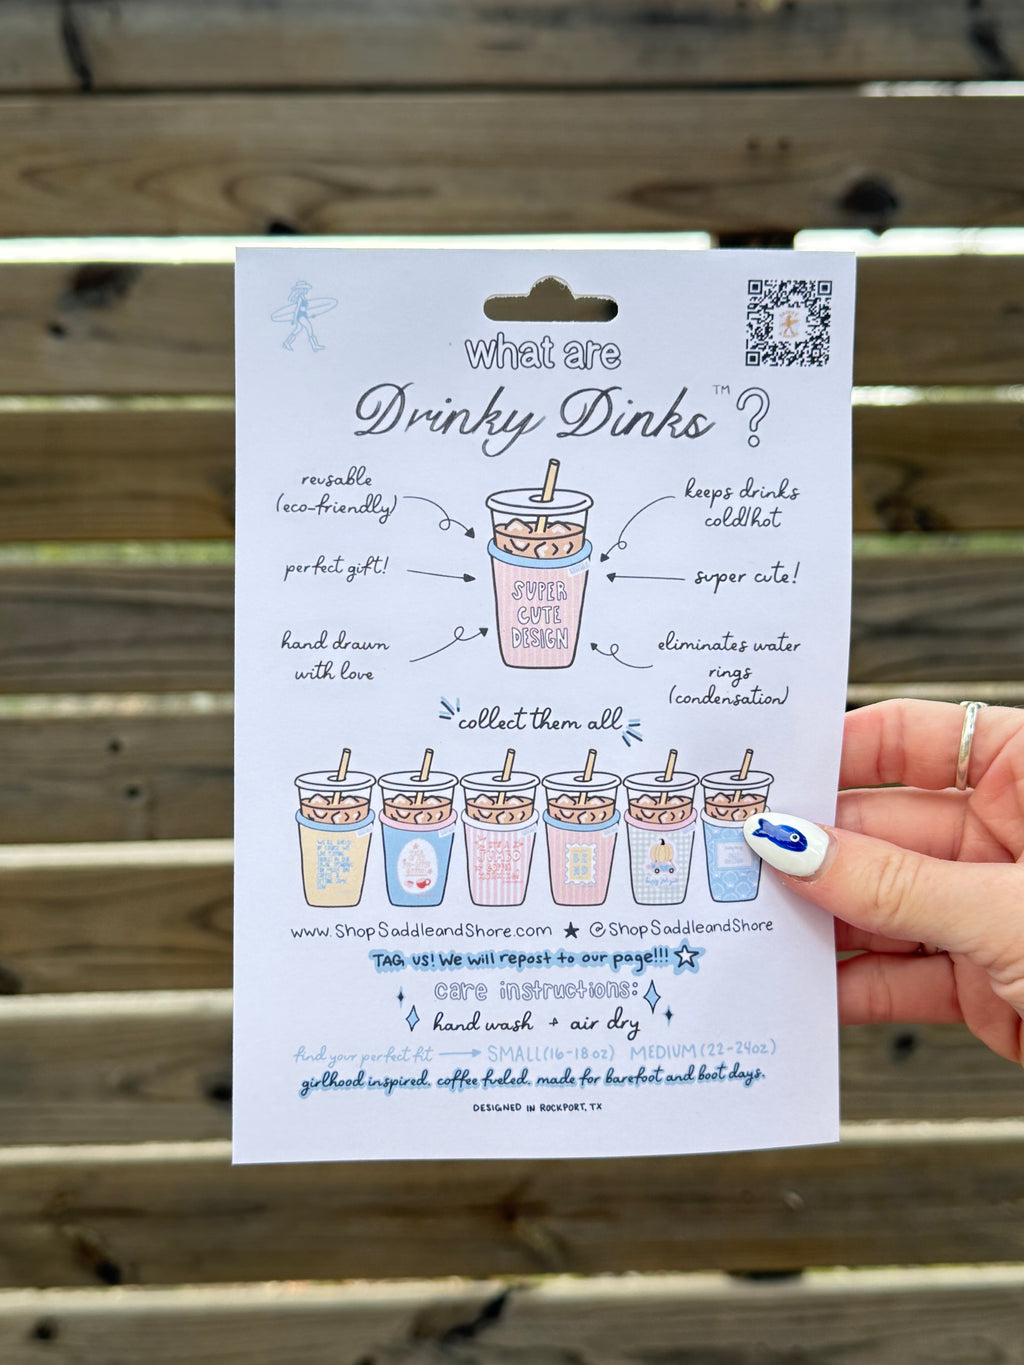 what are
Drinky Dinks™?
reusable
(eco-friendly)
keeps drinks
cold/hot
perfect gift!
super cute!
SUPER
CUTE
DESIGN
hand drawn
with love
eliminates water
rings
(condensation)
collect them all
www.ShopSaddleandShore.com ★ @ShopSaddleandShore
TAG US! We will repost to our page!!!
care instructions:
hand wash + air dry
find your perfect fit → SMALL(16-18oz) MEDIUM(22-24oz)
girlhood inspired. coffee fueled. made for barefoot and boot days.
DESIGNED IN ROCKPORT, TX